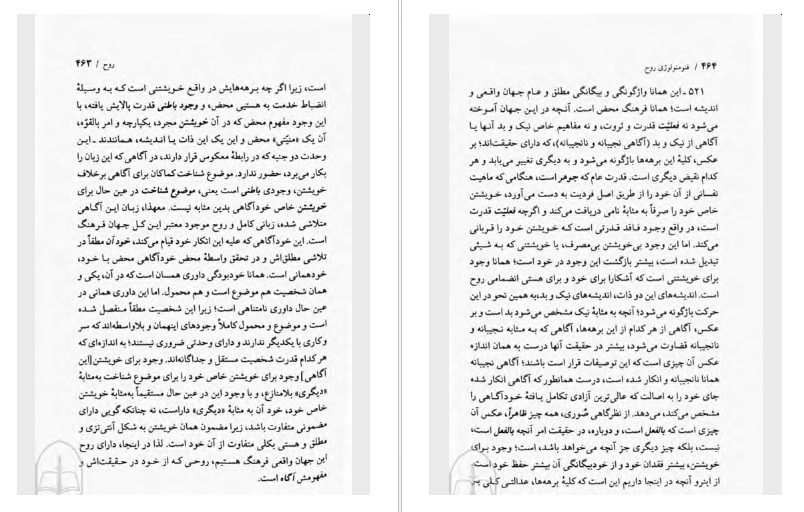 روح / ۴۶۳
است، زیرا اگر چه برهه‌هایش در واقع خویشتنی است که به وسیلهٔ
انضباط خدمت به هستیی محض، و وجود باطنی قدرت پالایش یافته، با
این وجود مفهوم محض که در آن خویشتن مجرد، یکپارچه و امر بالقوّه،
آن یک «منیّتی» محض و این یک این ذات یا اندیشه، همانندند ـ این
وحدت دو جنبه که در رابطهٔ معکوس قرار دارند، در آگاهی که این زبان را
بکار می‌برد، حضور ندارد. موضوع شناخت کماکان برای آگاهی برخلاف
خویشتن، وجودی باطنی است یعنی، موضوع شناخت در عین حال برای
خویشتن خاص خودآگاهی بدین مثابه نیست. معهذا، زبان این آگاهی
متلاشی شده، زبانی کامل و روح موجود معتبر این کل جهان فرهنگ
است. این خودآگاهی که علیه این انکار خود قیام می‌کند، خود آن مطلقاً در
تلاشی مطلق‌اش و در تحقق واسطهٔ محض خودآگاهی محض با خود،
خودهمانی است. همانا خودبودگی داوری همسان است که در آن، یکی و
همان شخصیت هم موضوع است و هم محمول. اما این داوری همانی در
عین حال داوری نامتناهی است؛ زیرا این شخصیت مطلقاً منفصل شده
است و موضوع و محمول کاملاً وجودهای اینهمان و بلاواسطه‌اند که سر
و کاری با یکدیگر ندارند و دارای وحدتی ضروری نیستند؛ به اندازه‌ای که
هر کدام قدرت شخصیت مستقل و جداگانه‌اند. وجود برای خویشتن [این
آگاهی] وجود برای خویشتن خاص خود را برای موضوع شناخت به‌مثابهٔ
«دیگری» بلامنازع، و با وجود این در عین حال مستقیماً به‌مثابهٔ خویشتن
خاص خود، خود آن به مثابهٔ «دیگری» داراست، نه چنانکه گویی دارای
مضمونی متفاوت باشد، زیرا مضمون همان خویشتن به شکل آنتی‌تزی و
مطلق و هستی بکلی متفاوت از آن خود است. لذا در اینجا، دارای روح
این جهان واقعی فرهنگ هستیم، روحی که از خود در حقیقت‌اش و
مفهومش آگاه است.
۴۶۴ / فنومنولوژی روح
۵۲۱ ـ این همانا واژگونگی و بیگانگی مطلق و عام جهان واقعی و
اندیشه است؛ همانا فرهنگ محض است. آنچه در این جهان آموخته
می‌شود نه فعلیّت قدرت و ثروت، و نه مفاهیم خاص نیک و بد آنها یا
آگاهی از نیک و بد (آگاهی نجیبانه و نانجیبانه)، که دارای حقیقت‌اند؛ بر
عکس، کلیهٔ این برهه‌ها باژگونه می‌شود و به دیگری تغییر می‌یابد و هر
کدام نقیض دیگری است. قدرت عام که جوهر است، هنگامی که ماهیت
نفسانی از آن خود را از طریق اصل فردیت به دست می‌آورد، خویشتن
خاص خود را صرفاً به مثابهٔ نامی دریافت می‌کند و اگرچه فعلیّت قدرت
است، در واقع وجود فاقد قدرتی است که خویشتن خود را قربانی
می‌کند. اما این وجود بی‌خویشتن بی‌مصرف، یا خویشتنی که به شیئی
تبدیل شده است، بیشتر بازگشت این وجود در خود است؛ همانا وجود
برای خویشتنی است که آشکارا برای خود و برای هستی انضمامی روح
است. اندیشه‌های این دو ذات، اندیشه‌های نیک و بد، به همین نحو در این
حرکت باژگونه می‌شود؛ آنچه به مثابهٔ نیک مشخص می‌شود بد است و بر
عکس. آگاهی از هر کدام از این برهه‌ها، آگاهی که به مثابه نجیبانه و
نانجیبانه قضاوت می‌شود، بیشتر در حقیقت آنها درست به همان اندازه
عکس آن چیزی است که این توصیفات قرار است باشند؛ آگاهی نجیبانه
همانا نانجیبانه و انکار شده است، درست همانطور که آگاهی انکار شده
جای خود را به اصالت که عالی‌ترین آزادی تکامل یافتهٔ خودآگاهی را
مشخص می‌کند، می‌دهد. از نظرگاهی صُوری، همه چیز ظاهراً، عکس آن
چیزی است که بالفعل است، و دوباره، در حقیقت امر آنچه بالفعل است،
نیست، بلکه چیز دیگری جز آنچه می‌خواهد باشد، است؛ وجود برای
خویشتن، بیشتر فقدان خود و از خودبیگانگی آن بیشتر حفظ خود است.
از اینرو آنچه در اینجا داریم این است که کلیهٔ برهه‌ها، عدالتی کلی بر